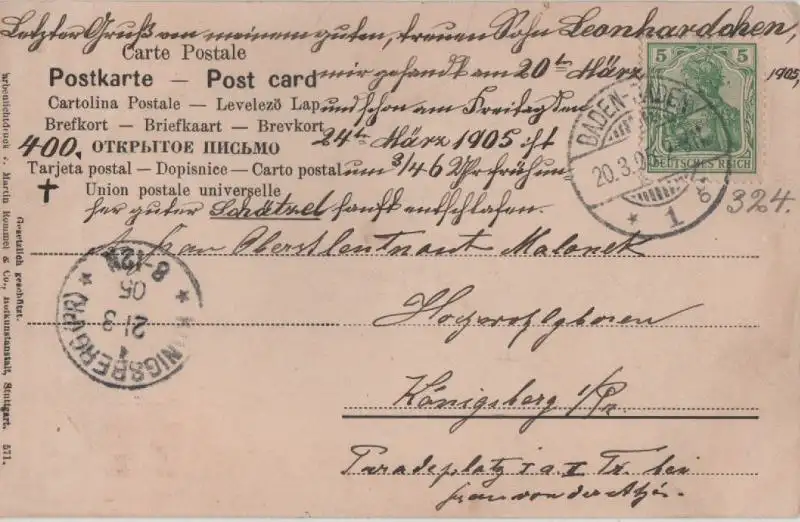 Letzter Gruß von meinem guten, treuen Sohn Leonhardchen,
Carte Postale
mir gesandt am 20ten März 1905,
Postkarte — Post card
Cartolina Postale — Levelező Lap
und schon am Freitag den
Brefkort — Briefkaart — Brevkort
24te März 1905 ist
400. ОТКРЫТОЕ ПИСЬМО
Tarjeta postal — Dopisnice — Carto postal
um 3/46 Uhr früh
✝ Union postale universelle
guter Schätzel sanft entschlafen.
324.
An Frau Oberstleutnant Malonek
Hochwohlgeboren
Königsberg i/Pr.
Paradeplatz I a II Tr. bei
Frau von der
5 5
DEUTSCHES REICH
BADEN-BADEN
20.3.
* 1
KÖNIGSBERG (PR)
1
21 3
05
8-12V
Martin Rommel & Co., Hofkunstanstalt, Stuttgart. 571.
Gesetzlich geschützt.